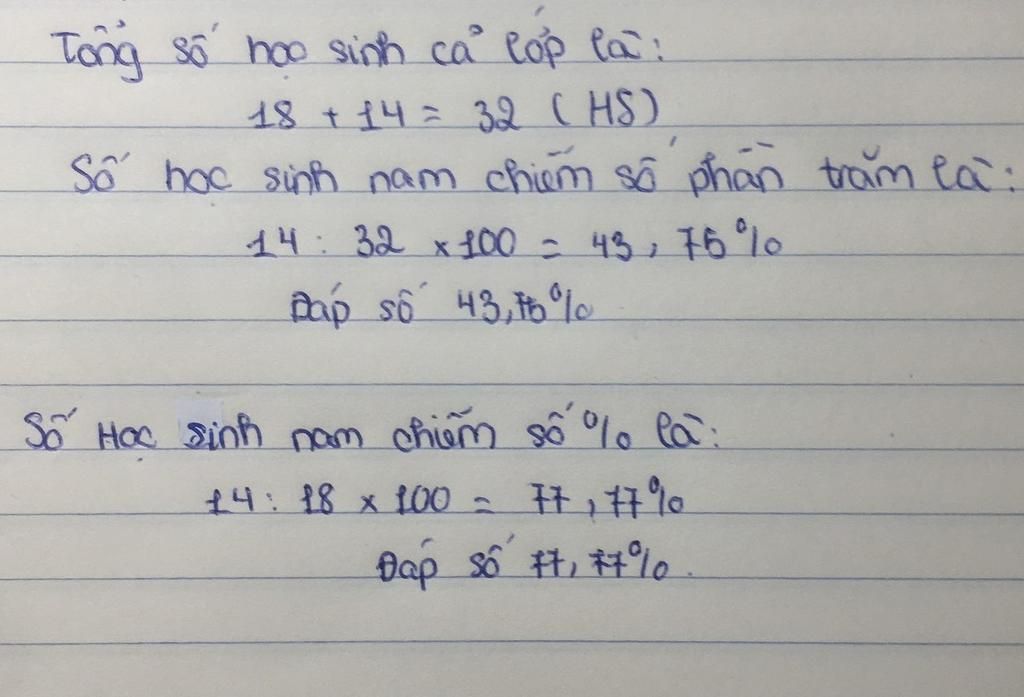 Tổng số học sinh cả lớp là:
18 + 14 = 32 (HS)
Số học sinh nam chiếm số phần trăm là:
14 : 32 x 100 = 43,75%
Đáp số 43,75%
Số Học sinh nam chiếm số % là:
14 : 18 x 100 = 77,77%
Đáp số 77,77%.